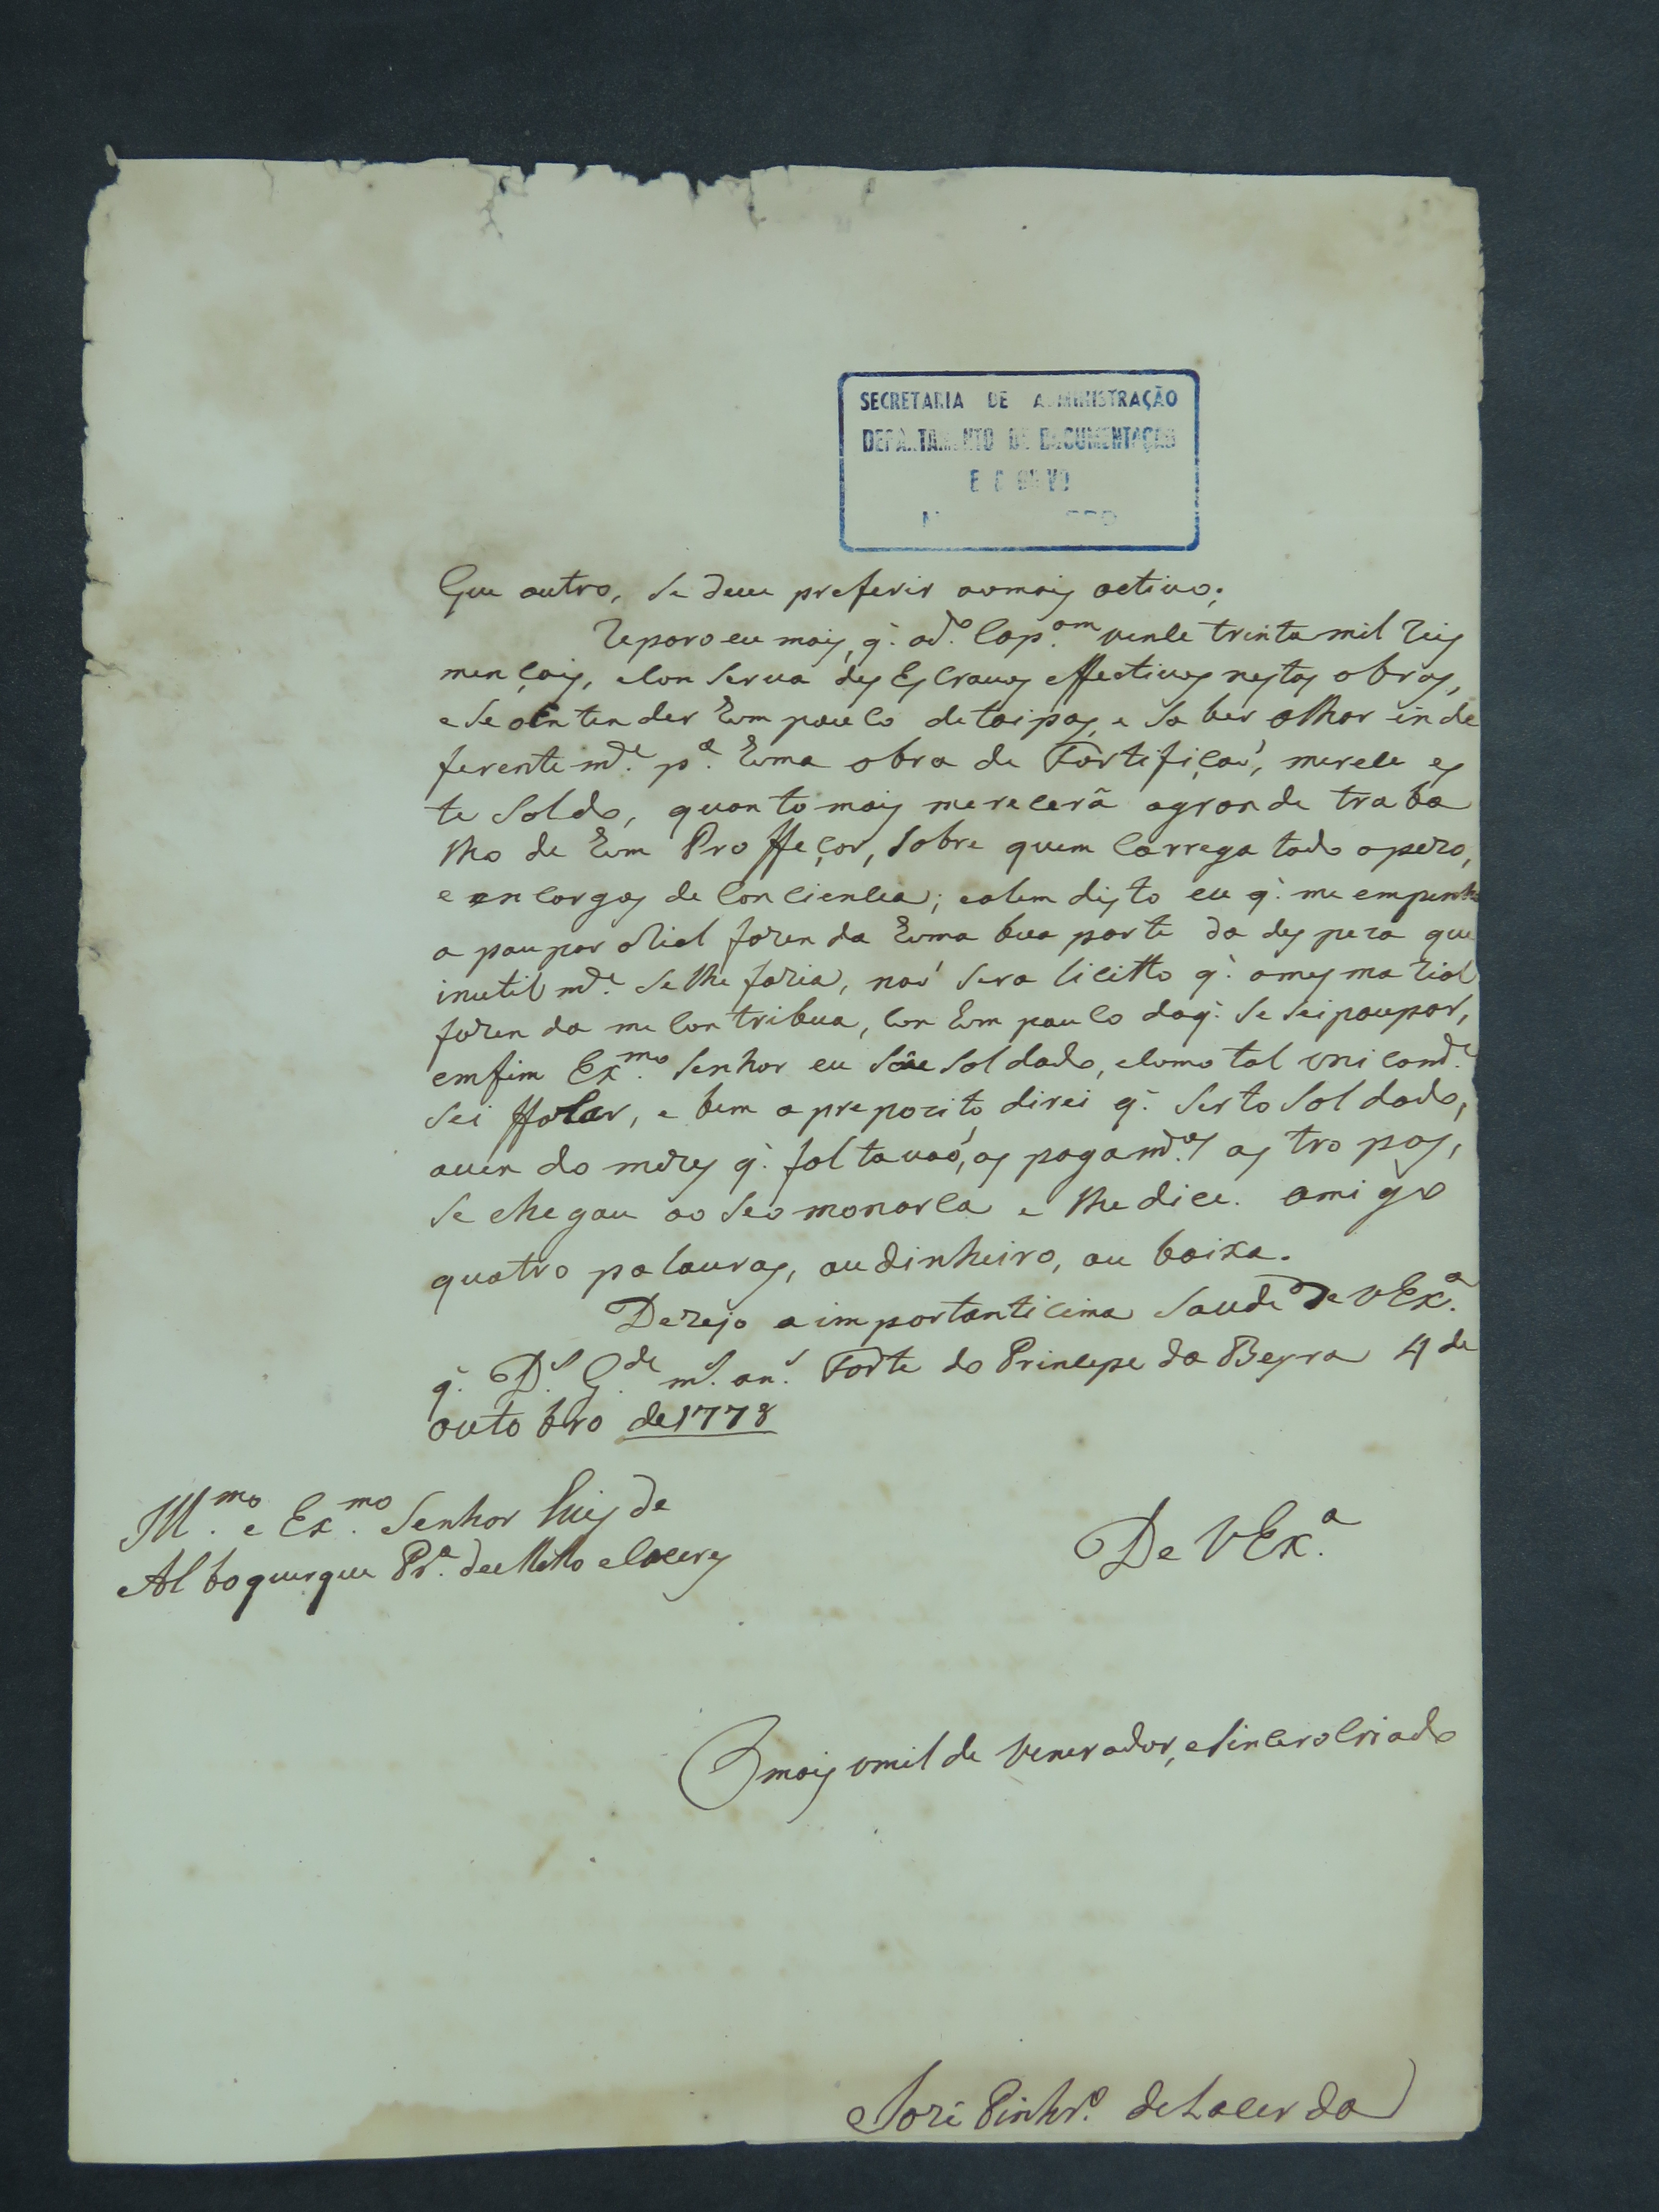 SECRETARIA DE ADMINISTRAÇÃO
DEPARTAMENTO DE DOCUMENTAÇÃO
E ARQUIVO
Que outro, se deue preferir aomais activo;
Reparo eu mais, q̃. od.º Cap.am vençe trinta mil reis
mençais, e con serua des Escrauos effectivos nestas obras,
e se o enten der hum pouco de taipas, e sa ber olhar in de
ferente m.de p.ª huma obra de Fortificaó, merece es
te Soldo, quan to mais merecerá a grande traba
lho de hum Pro ffeçor, Sobre quem carrega todo o pezo,
e en cargos de conciencia; e alem disto eu q̃. me empenho
a poupar a Rial fazen da huma boa parte da des peza que
inutil m.de se lhe fazia, naó sera licitto q̃. a mes ma Rial
fazen da me con tribua, con hum pouco do q̃. se sei poupar,
em fim Ex.mo Senhor eu Sou Soldado, e como tal uni cam.de
sei ffalar, e bem a prepozito direi q̃. Serto Sol dado,
auen do mezes q̃. fal tauaó, os pagam.tos as tro pas,
se chegou ao seo monarca e lhe dice. amigo
quatro palauras, ou dinheiro, ou baixa.
Dezejo a importanticima Saude De V Ex.ª
q̃. D.s G.de m.s an.s Forte do Princepe da Beyra 4 de
outo bro de 1778
Ill.mo e Ex.mo Senhor Luis de
Al boquerque Pr.ª de Mello e Caceres
De V Ex.ª
O mais umil de Venerador, e Sincero Criado
Joze Pinhr.º de Lacer da